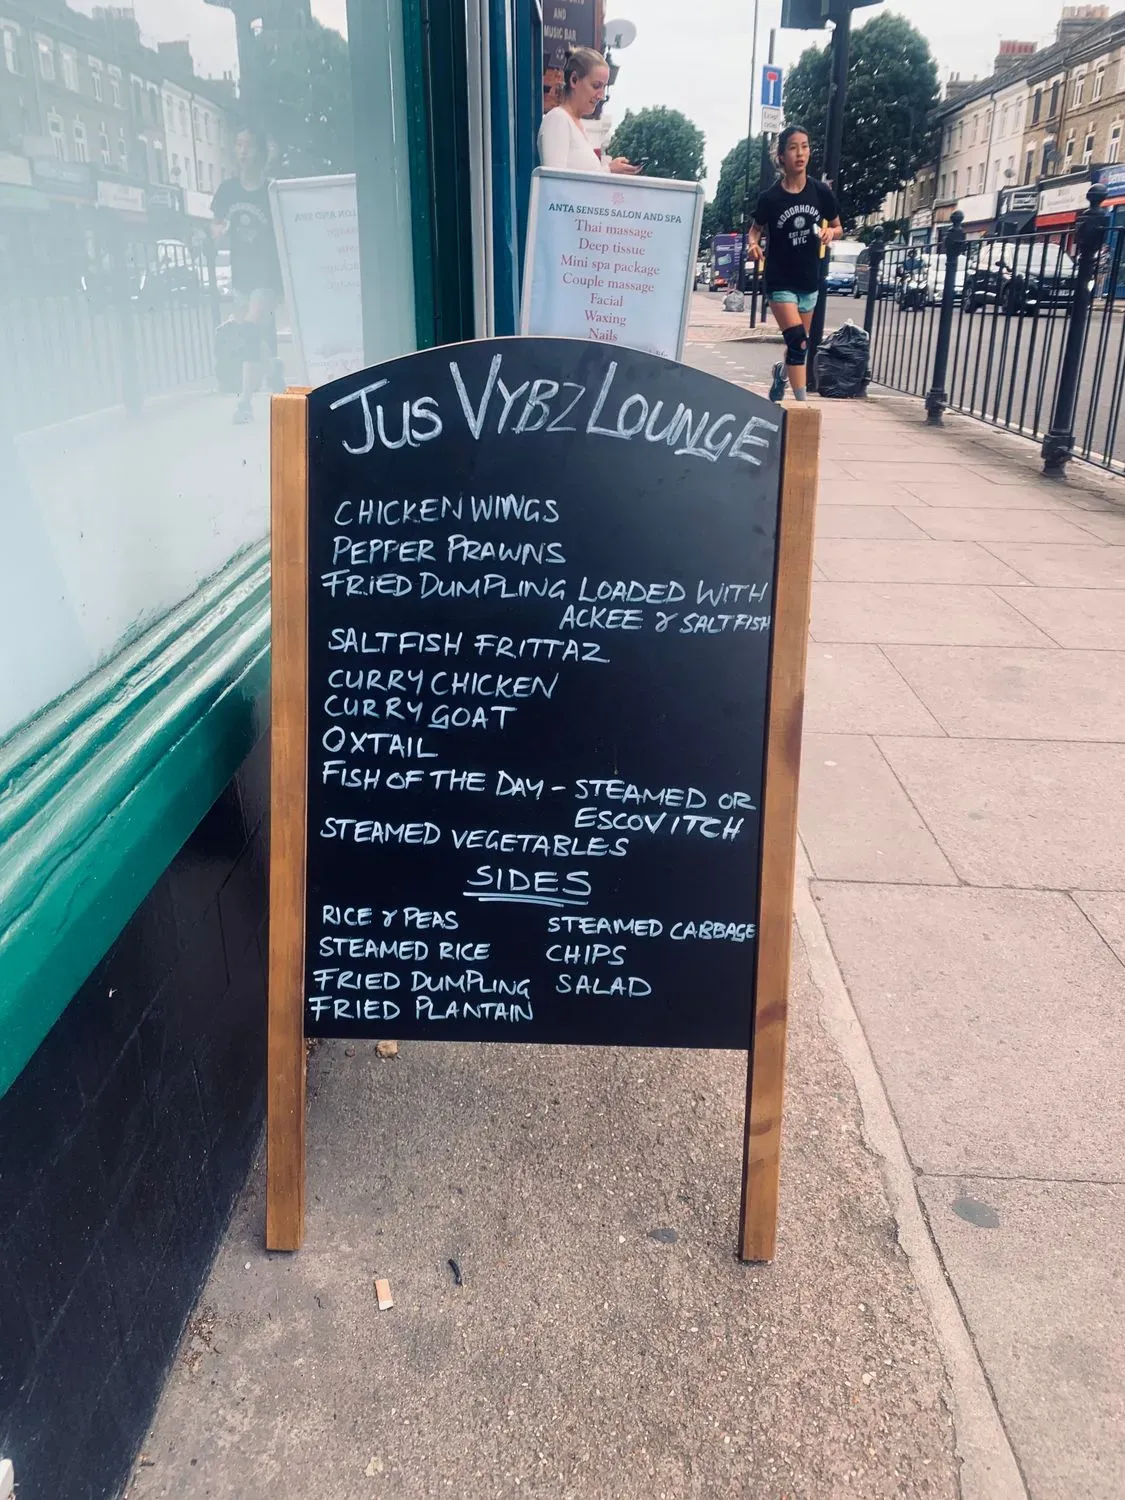 AND
MUSIC BAR
ANTA SENSES SALON AND SPA
Thai massage
Deep tissue
Mini spa package
Couple massage
Facial
Waxing
Nails
INDOORHOOPS
EST 2011
NYC
JUS VYBZ LOUNGE
CHICKEN WINGS
PEPPER PRAWNS
FRIED DUMPLING LOADED WITH
ACKEE & SALTFISH
SALTFISH FRITTAZ
CURRY CHICKEN
CURRY GOAT
OXTAIL
FISH OF THE DAY - STEAMED OR
ESCOVITCH
STEAMED VEGETABLES
SIDES
RICE & PEAS STEAMED CABBAGE
STEAMED RICE CHIPS
FRIED DUMPLING SALAD
FRIED PLANTAIN